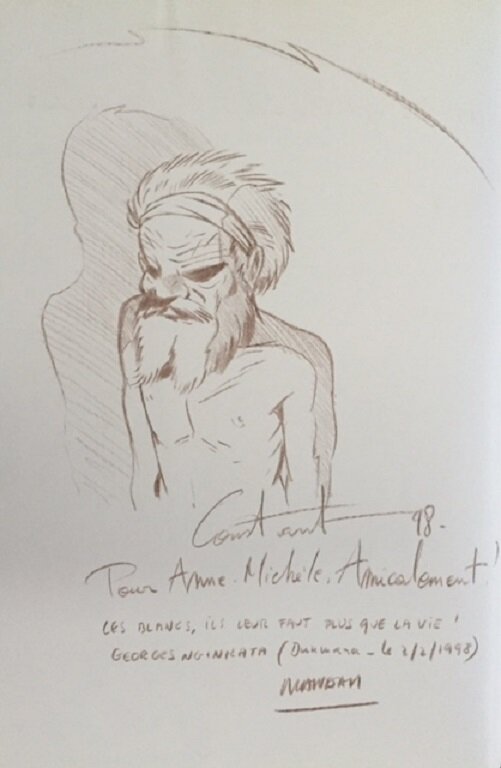 Constant 98.
Pour Anne-Michèle, Amicalement!
LES BLANCS, ILS LEUR FAUT PLUS QUE LA VIE !
GEORGES ( - le 2/2/1998)